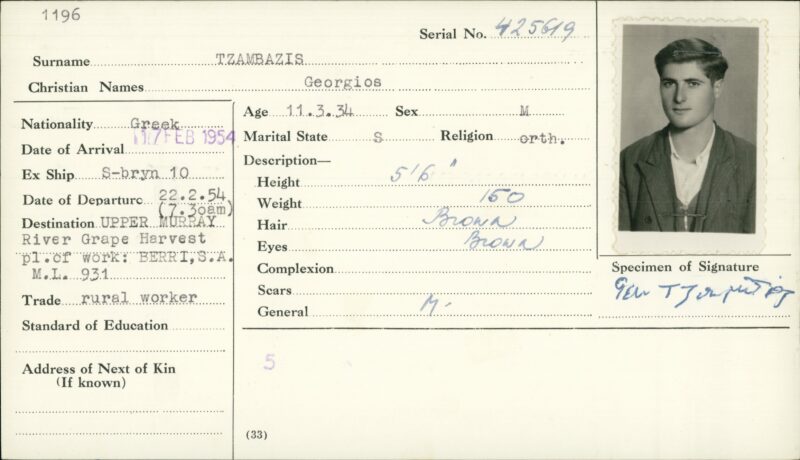 1196
Serial No. 425619
Surname TZAMBAZIS
Christian Names Georgios
Nationality Greek
Date of Arrival 17 FEB 1954
Ex Ship S-bryn 10
Date of Departure 22.2.54
(7.30am)
Destination UPPER MURRAY
River Grape Harvest
pl.of work: BERRI,S.A.
M.L. 931
Trade rural worker
Standard of Education
Address of Next of Kin
(If known)
Age 11.3.34 Sex M
Marital State S Religion orth.
Description—
Height 5'6"
Weight 150
Hair Brown
Eyes Brown
Complexion
Scars
General M.
5
(33)
Specimen of Signature